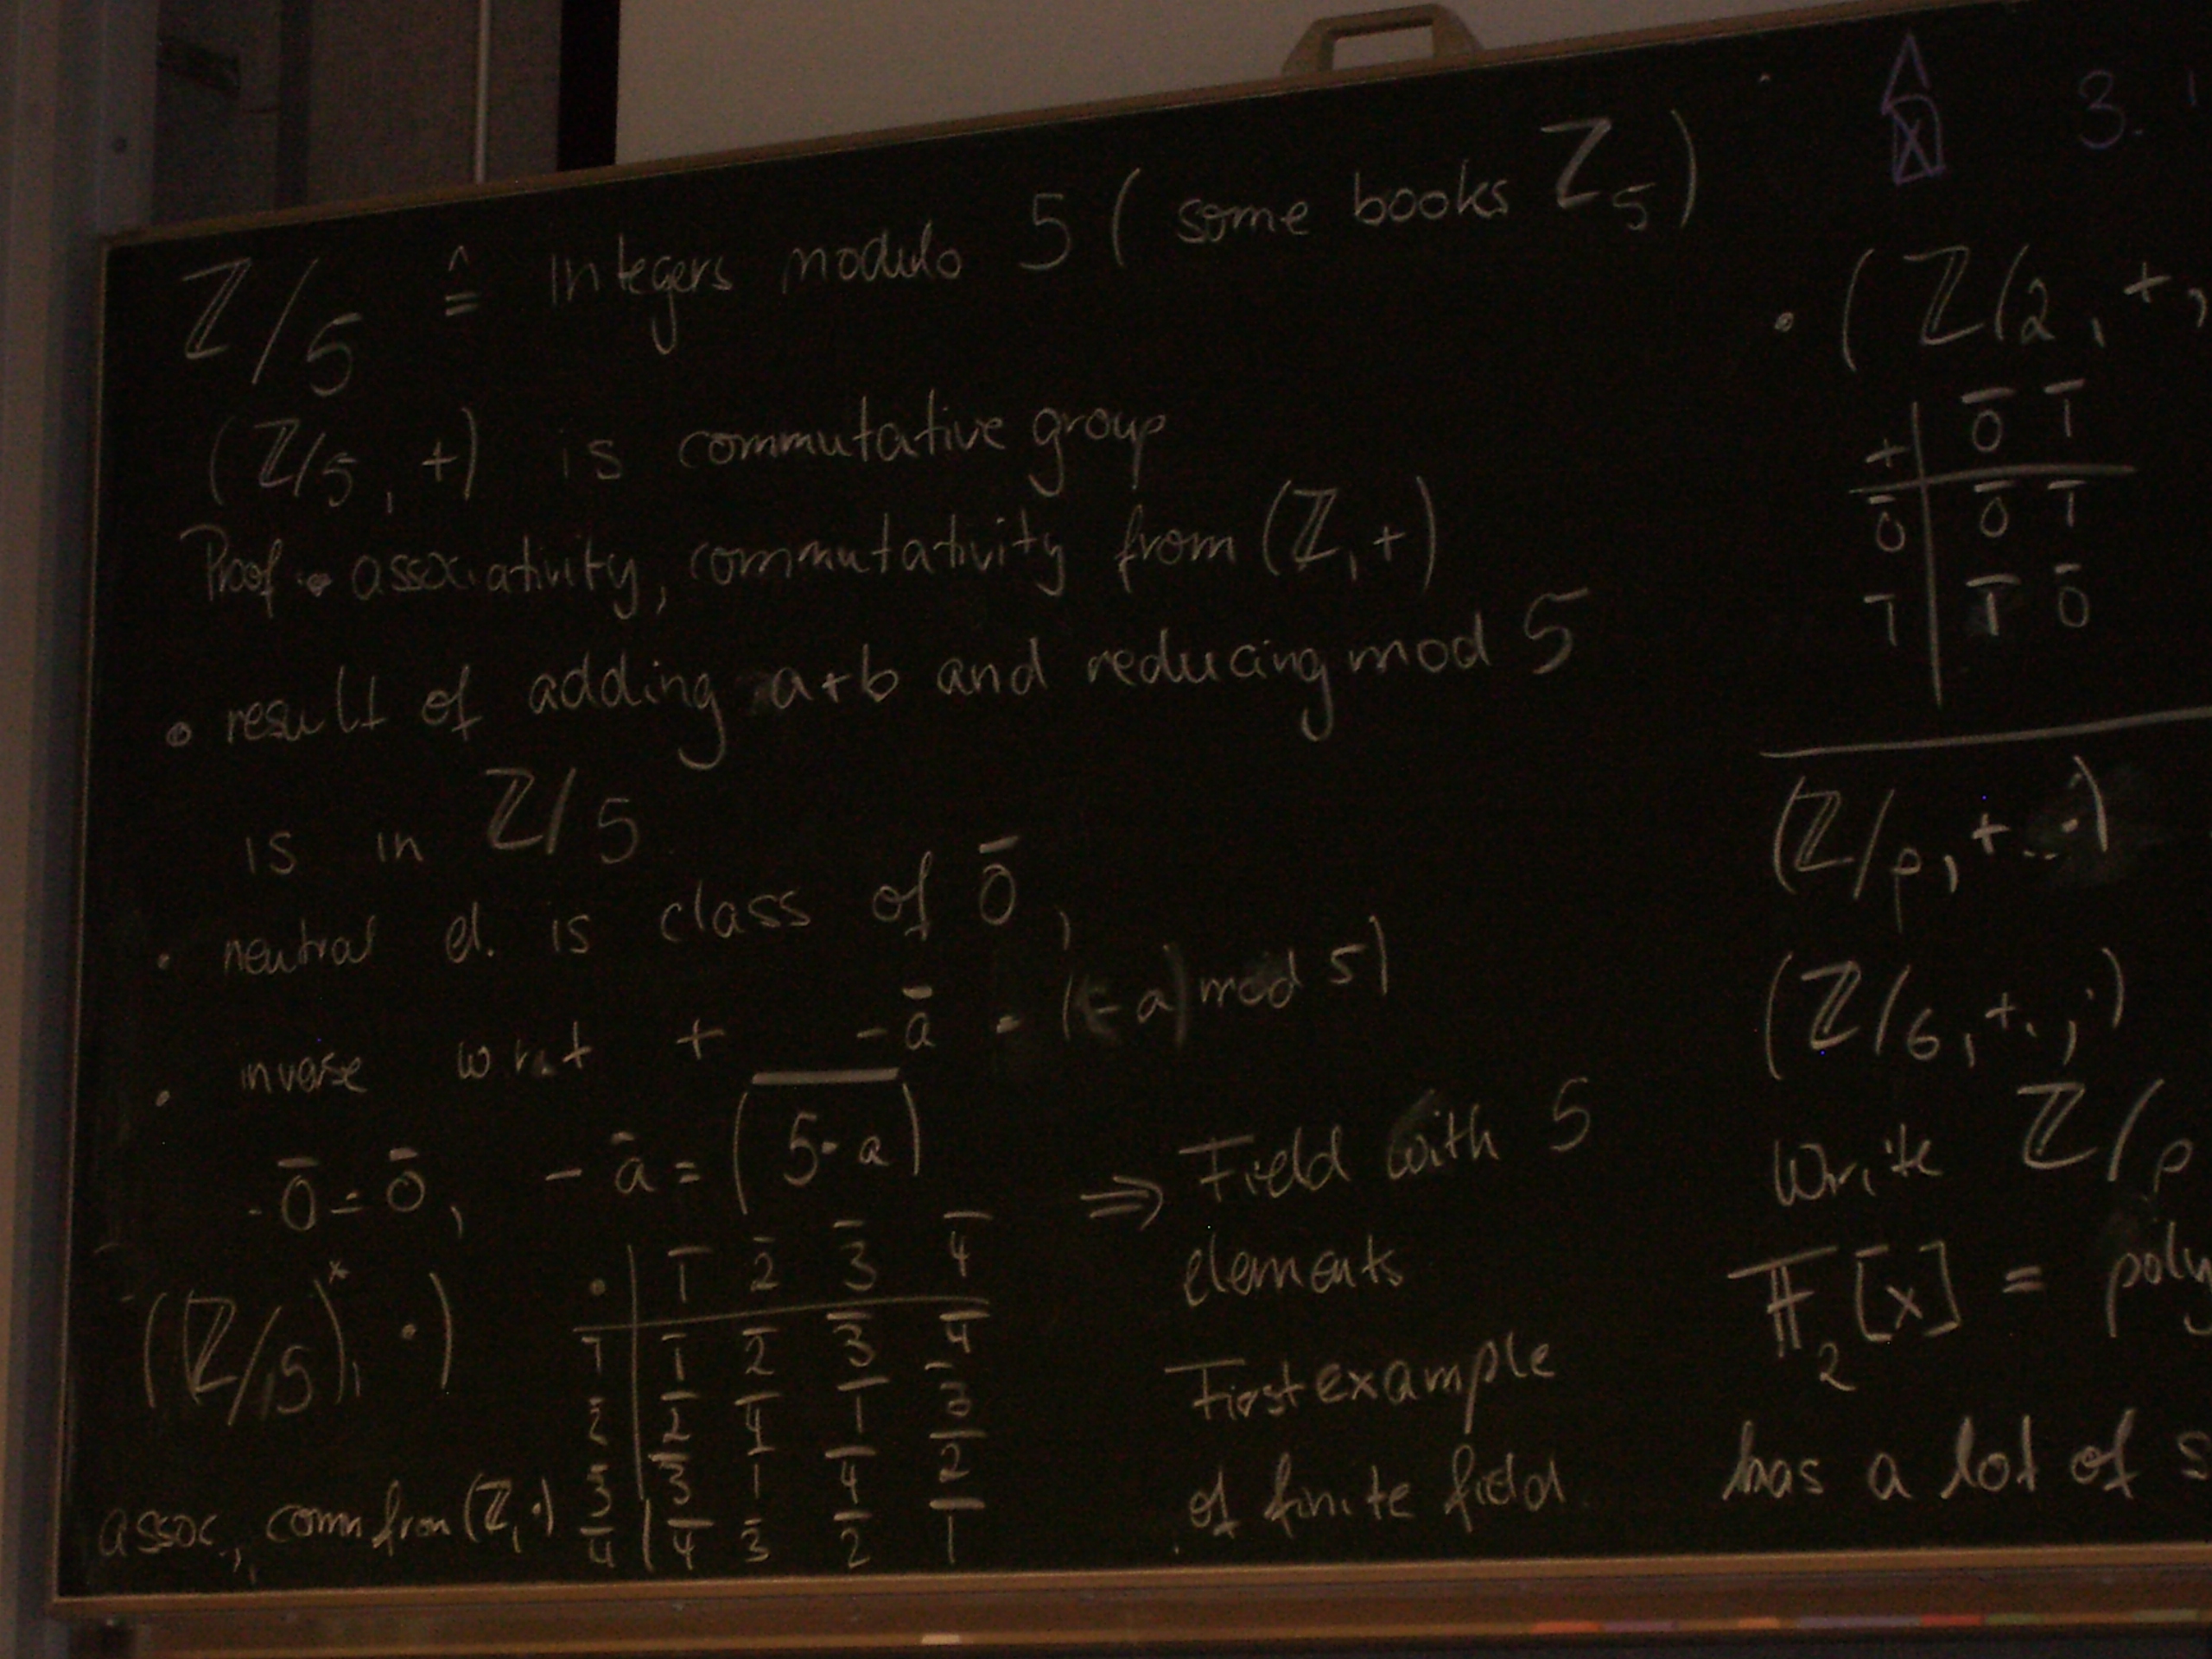 ℤ/5 ≙ Integers modulo 5 ( some books ℤ₅ )
(ℤ/5, +) is commutative group
Proof • associativity, commutativity from (ℤ, +)
• result of adding a+b and reducing mod 5
is in ℤ/5
• neutral el. is class of 0̄,
• inverse w.r.t + -ā = ((-a) mod 5)
-0̄ = 0̄, -ā = (5-a)
((ℤ/5)*, ·)
· | 1̄ 2̄ 3̄ 4̄
1̄ | 1̄ 2̄ 3̄ 4̄
2̄ | 2̄ 4̄ 1̄ 3̄
3̄ | 3̄ 1̄ 4̄ 2̄
4̄ | 4̄ 3̄ 2̄ 1̄
assoc., comm from (ℤ, ·)
⇒ Field with 5
elements
First example
of finite field.
3.
• (ℤ/2, +,
+ | 0̄ 1̄
0̄ | 0̄ 1̄
1̄ | 1̄ 0̄
(ℤ/p, +, ·)
(ℤ/6, +, ·)
Write ℤ/p
𝔽₂[x] = poly
has a lot of s